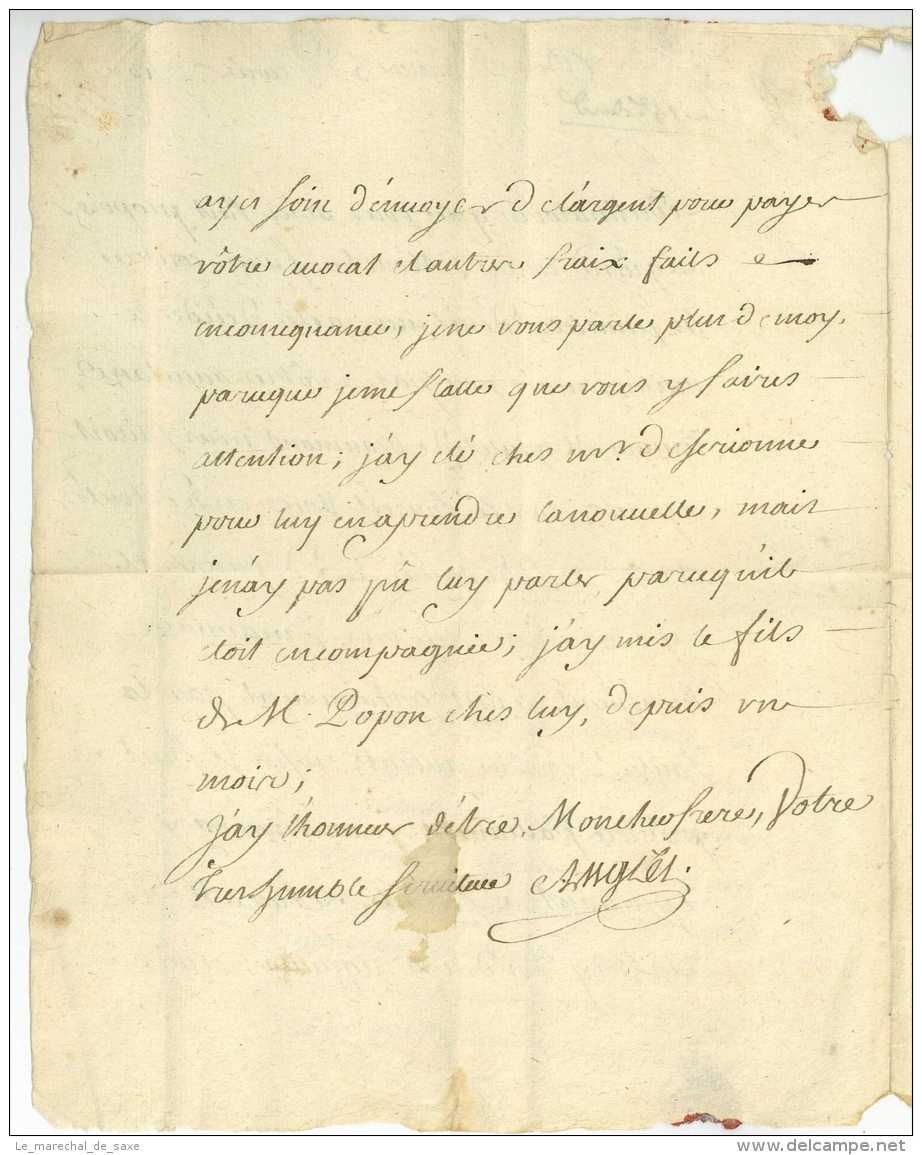 ayes soin d'énvoyer de l'argent pour payer
vôtre avocat et autres fraix faits e
en consequance, je ne vous parle plus de moy,
parceque je me flatte que vous y faires
attention; j'ay eté ches mr. descrionne
pour luy en aprendre la nouvelle, mais
je n'ay pas pû luy parler parcequ'il
etoit en compagnie; j'ay mis le fils
de M. Popon ches luy, depuis un
mois;
j'ay l'honneur d'étre, Mon cher frere, Votre
tres humble serviteur Anglés.
Le_marechal_de_saxe
www.delcampe.net